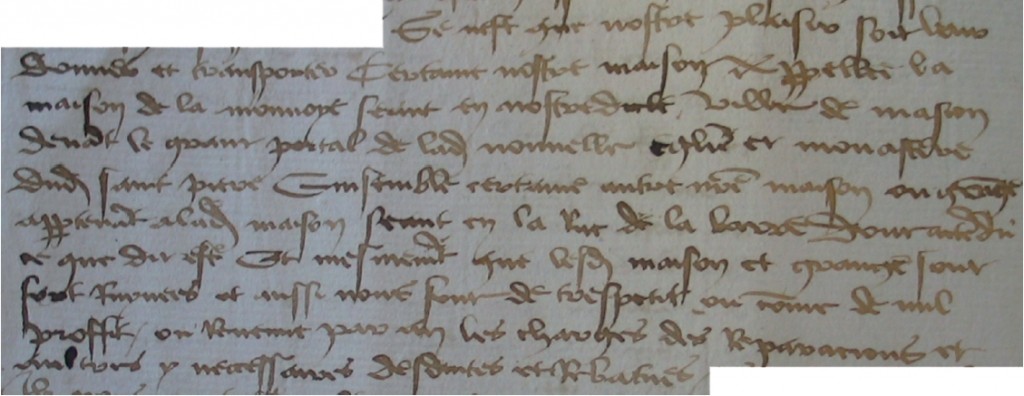 Se n'est que nostre plaisir soit leur
donner et transporter Certaine nostre maison appellee la
maison de la monnoye seant en nostredicte ville de mascon
devāt le grant portal de lad nouvelle Eglise et monastere
dud saint pierre Ensemble certaine autre nr̄e maison ou grāge
appten̄t a lad maison seant en la Rue de la barre Pour
ce que dit est Et mesmemēt que lesd maison et grange sont
fort Ruynees et aussi nous sont de trespetit ou cōme de nul
proffit ou Revenue par an les charges des Reparacions et
aultres y necessaires desduites et Rabatues